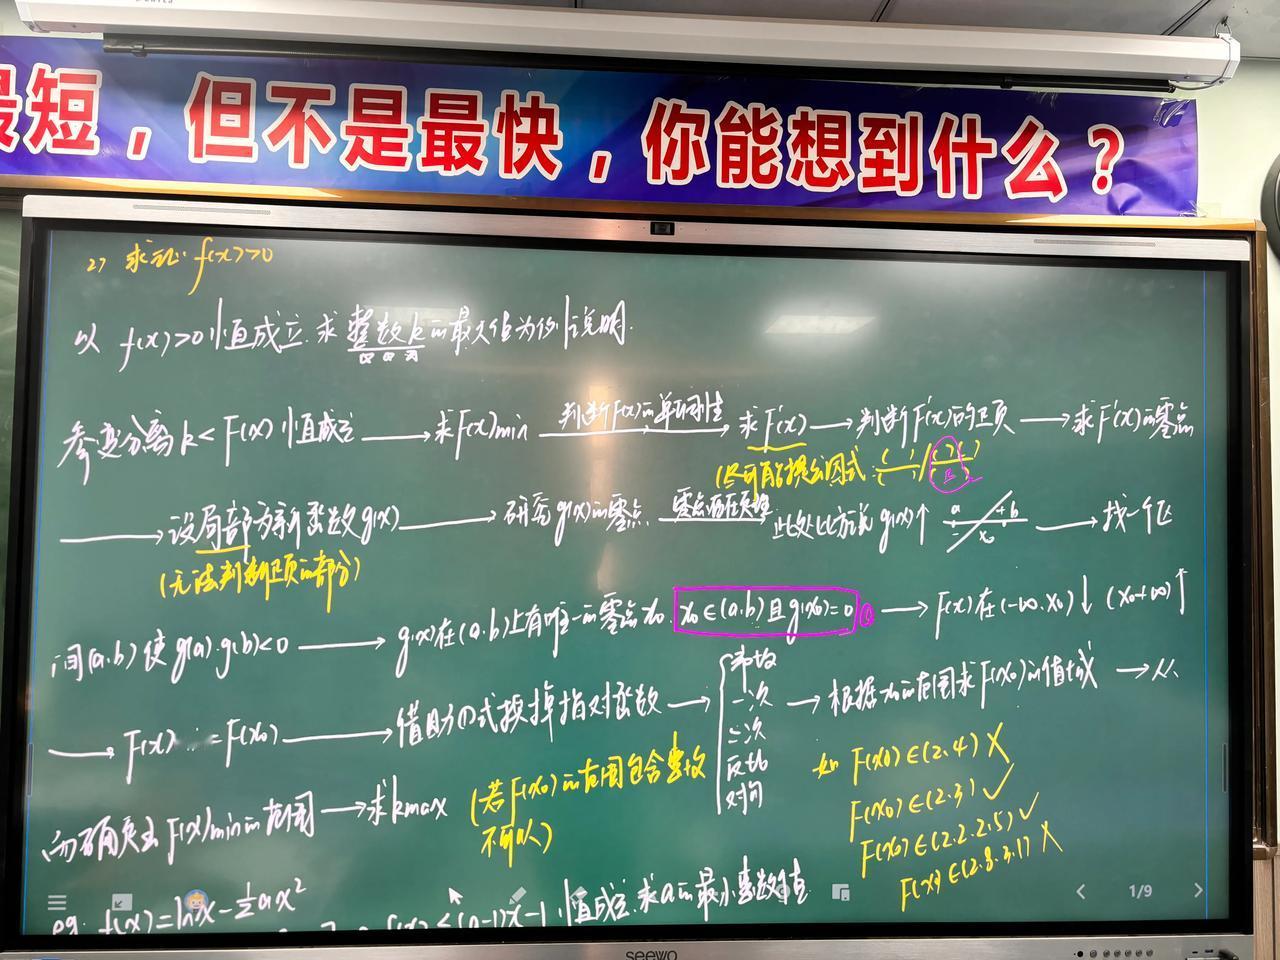 最短，但不是最快，你能想到什么？
2) 求证: f(x)>0
以 f(x)>0恒成立 求整数k的最大值为例 说明.
参变分离 k<F(x)恒成立 → 求F(x)min 判断F(x)的单调性 → 求F'(x) → 判断F'(x)的正负 → 求F'(x)的零点
(尽可能提公因式
→ 设局部为新函数g(x) → 研究g(x)的零点 零点存在定理 此处比方说 g(x)↑ a x₀ b → 找一个区
(无法判断正负的部分)
间(a,b) 使 g(a)·g(b)<0 → g(x)在(a,b)上有唯一的零点x₀. x₀∈(a,b)且g(x₀)=0 → F(x)在(-∞,x₀)↓ (x₀,+∞)↑
→ F(x) =F(x₀) → 借助①式换掉指对函数 → → 根据x₀的范围求F(x₀)的值域 → 从
常数
一次
二次
反比
对勾
而确定出F(x)min的范围 → 求kmax (若F(x₀)的范围包含整数
不可以)
如 F(x₀)∈(2,4) ✗
F(x₀)∈(2,3) ✓
F(x₀)∈(2.2,2.5) ✓
F(x₀)∈(2.8,3.1) ✗
eg: f(x)=lnx-½ax²
f(x)≤(a-1)x-1 恒成立, 求a的最小整数值
1/9
seewo